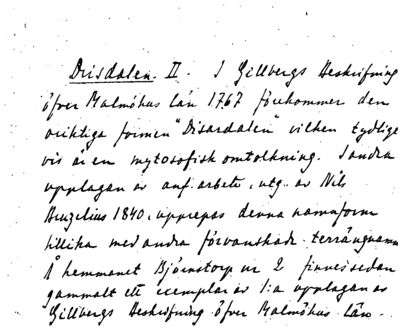 Drisdalen. II. I Gillbergs Beskrifning
öfver Malmöhus Län 1767 förekommer den
oriktiga formen "Disardalen" vilken tydligt
vis är en mytosofisk omtolkning. I andra
upplagan av anf. arbete, utg. av Nils
Bruzelius 1840, upprepas denna namnform
tillika med andra förvanskade terrängnamn
Å hemmanet Björnstorp nr 2 finnes sedan
gammalt ett exemplar av 1:a upplagan av
Gillbergs Beskrifning öfver Malmöhus Län.